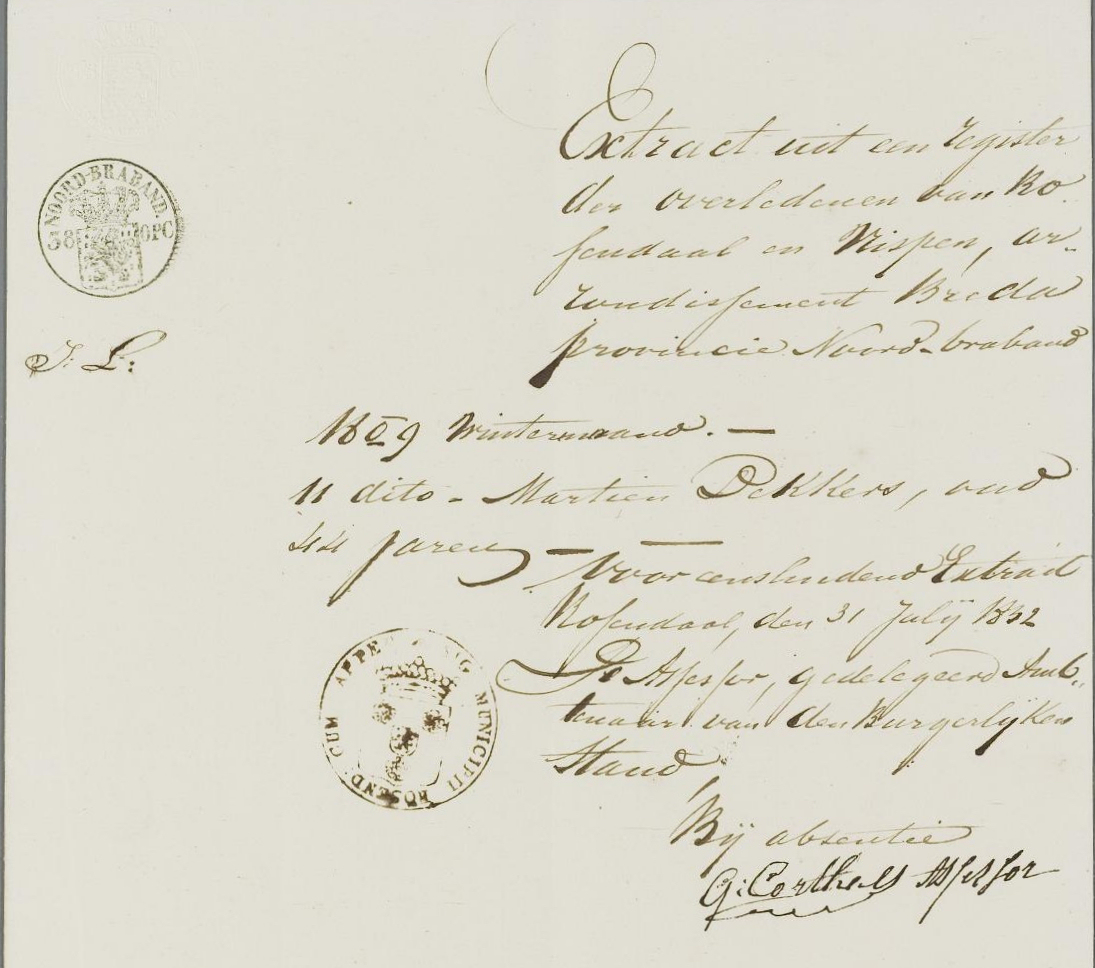 Extract uit een register
der overledenen van Ro-
sendaal en Nispen, ar-
rondissement Breda
provincie Noord-braband
NOORD-BRABAND.
38 OPC
J: L:
1809 Wintermaand. —
11 dito - Martien Dekkers, oud
44 jaren — —
Voor eensluidend Extract
Rosendaal, den 31 Julij 1832
De Assessor, gedelegeerd Amb-
tenaar van den Burgerlijken
Stand,
MUNICIPII ROSEND: CUM APPE
Bij absentie
G: Corthals Assessor